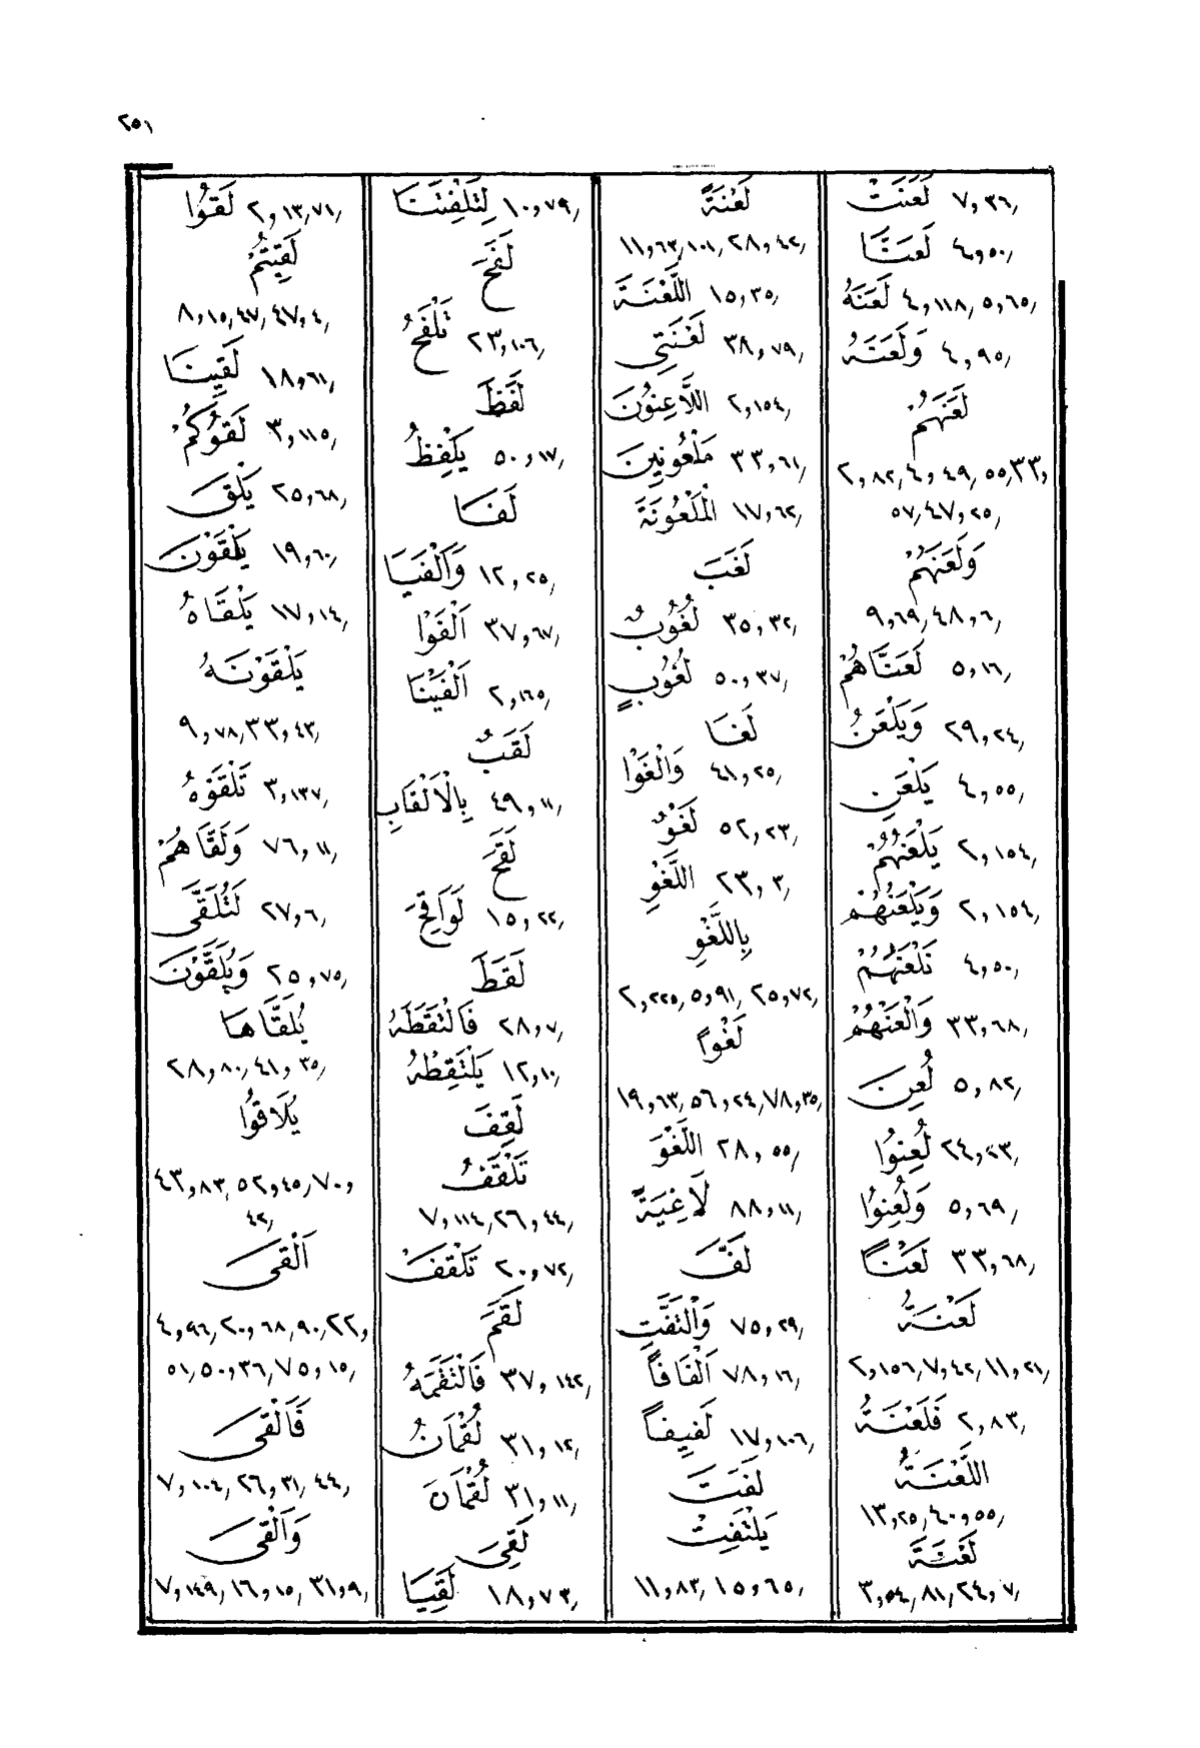 ٢٥١
لَعَنَتْ ٧,٣٦,
لَعَنَّا ٤,٥٠,
لَعَنَهُ ٤,١١٨,٥,٦٥,
وَلَعَنَهُ ٤,٩٥,
لَعَنَهُمْ
٢,٨٢,٤,٤٩,٥٥,٣٣,
٥٧,٤٧,٢٥,
وَلَعَنَهُمْ
٩,٦٩,٤٨,٦,
لَعَنَّاهُمْ ٥,١٦,
وَيَلْعَنُ ٢٩,٢٤,
يَلْعَنِ ٤,٥٥,
يَلْعَنُهُمْ ٢,١٥٤,
وَيَلْعَنُهُمْ ٢,١٥٤,
نَلْعَنَهُمْ ٤,٥٠,
وَالْعَنْهُمْ ٣٣,٦٨,
لُعِنَ ٥,٨٢,
لُعِنُوا ٢٤,٢٣,
وَلُعِنُوا ٥,٦٩,
لَعْنًا ٣٣,٦٨,
لَعْنَةُ
٢,١٥٦,٧,٤٢,١١,٢١,
فَلَعْنَةُ ٢,٨٣,
اللَّعْنَةُ
١٣,٢٥,٤٠,٥٥,
لَعْنَةَ
٣,٥٤,٨١,٢٤,٧,
لَعْنَةً
١١,٦٣,١٠١,٢٨,٤٢,
اللَّعْنَةَ ١٥,٣٥,
لَعْنَتِي ٣٨,٧٩,
اللَّاعِنُونَ ٢,١٥٤,
مَلْعُونِينَ ٣٣,٦١,
الْمَلْعُونَةَ ١٧,٦٢,
لَغَبَ
لُغُوبٌ ٣٥,٣٢,
لُغُوبٍ ٥٠,٣٧,
لَغَا
وَالْغَوْا ٤١,٢٥,
لَغْوٌ ٥٢,٢٣,
اللَّغْوِ ٢٣,٣,
بِاللَّغْوِ
٢,٢٢٥,٥,٩١,٢٥,٧٢,
لَغْوًا
١٩,٦٣,٥٦,٢٤,٧٨,٣٥,
اللَّغْوَ ٢٨,٥٥,
لَاغِيَةً ٨٨,١١,
لَفَّ
وَالْتَفَّتِ ٧٥,٢٩,
أَلْفَافًا ٧٨,١٦,
لَفِيفًا ١٧,١٠٦,
لَفَتَ
يَلْتَفِتْ
١١,٨٣,١٥,٦٥,
لِتَلْفِتَنَا ١٠,٧٩,
لَفَحَ
تَلْفَحُ ٢٣,١٠٦,
لَفَظَ
يَلْفِظُ ٥٠,١٧,
لَفَا
وَأَلْفَيَا ١٢,٢٥,
أَلْفَوْا ٣٧,٦٧,
أَلْفَيْنَا ٢,١٦٥,
لَقَبٌ
بِالْأَلْقَابِ ٤٩,١١,
لَقَحَ
لَوَاقِحَ ١٥,٢٢,
لَقَطَ
فَالْتَقَطَهُ ٢٨,٧,
يَلْتَقِطْهُ ١٢,١٠,
لَقِفَ
تَلْقَفُ
٧,١١٤,٢٦,٤٤,
تَلْقَفْ ٢٠,٧٢,
لَقَمَ
فَالْتَقَمَهُ ٣٧,١٤٢,
لُقْمَانُ ٣١,١٢,
لُقْمَانَ ٣١,١١,
لَقِىَ
لَقِيَا ١٨,٧٣,
لَقُوا ٢,١٣,٧١,
لَقِيتُمْ
٨,١٥,٤٧,٤٧,٤,
لَقِينَا ١٨,٦١,
لَقُوكُمْ ٣,١١٥,
يَلْقَ ٢٥,٦٨,
يَلْقَوْنَ ١٩,٦٠,
يَلْقَاهُ ١٧,١٤,
يَلْقَوْنَهُ
٩,٧٨,٣٣,٤٣,
تَلْقَوْهُ ٣,١٣٧,
وَلَقَّاهُمْ ٧٦,١١,
لَتُلَقَّى ٢٧,٦,
وَيُلَقَّوْنَ ٢٥,٧٥,
يُلَقَّاهَا
٢٨,٨٠,٤١,٣٥,
يُلَاقُوا
٤٣,٨٣,٥٢,٤٥,٧٠,
٤٢,
أَلْقَى
٤,٩٤,٢٠,٦٨,٩٠,٢٢,
٥١,٥٠,٣٦,٧٥,١٥,
فَأَلْقَى
٧,١٠٤,٢٦,٣١,٤٤,
وَأَلْقَى
٧,١٤٩,١٦,١٥,٣١,٩,